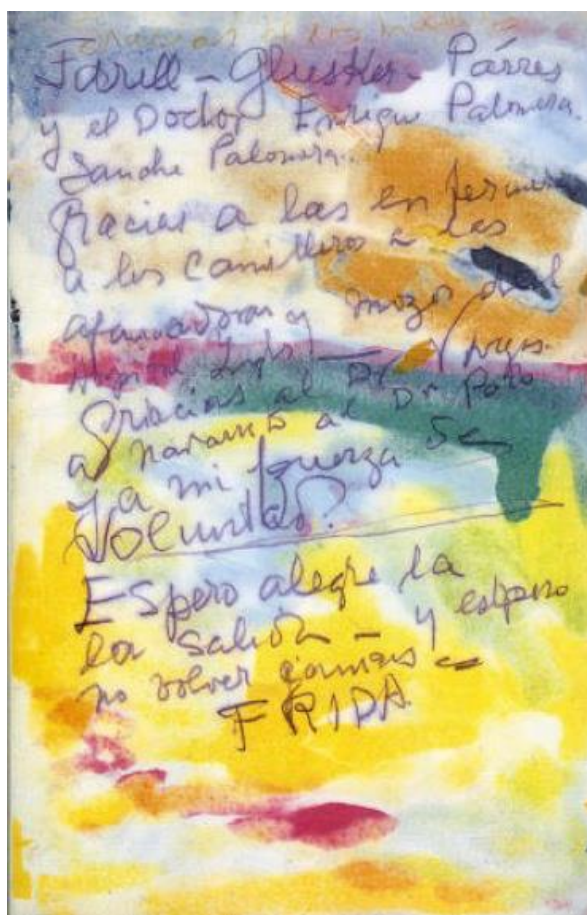 Gracias a los
Farill - Glusker - Párres
y el Doctor Enrique Palomera
Sanche Palomera.
Gracias a las enfermeras
a los Camilleros a las
afanadoras y mozos del
Hospital Inglés — Dr
Gracias al Dr Vargas.
a Navarro al Dr Polo
y a mi fuerza de
Voluntad?
Espero alegre la
la salida - y espero
no volver jamás =
FRIDA